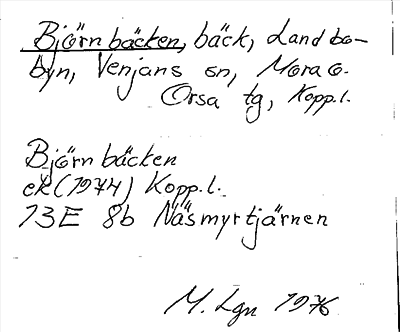 Björnbäcken, bäck, Landbo-
byn, Venjans sn, Mora o.
Orsa tg, Kopp.l.
Björnbäcken
ek (1974) Kopp.l.
13E 8b Näsmyrtjärnen
M. Lgn 1976